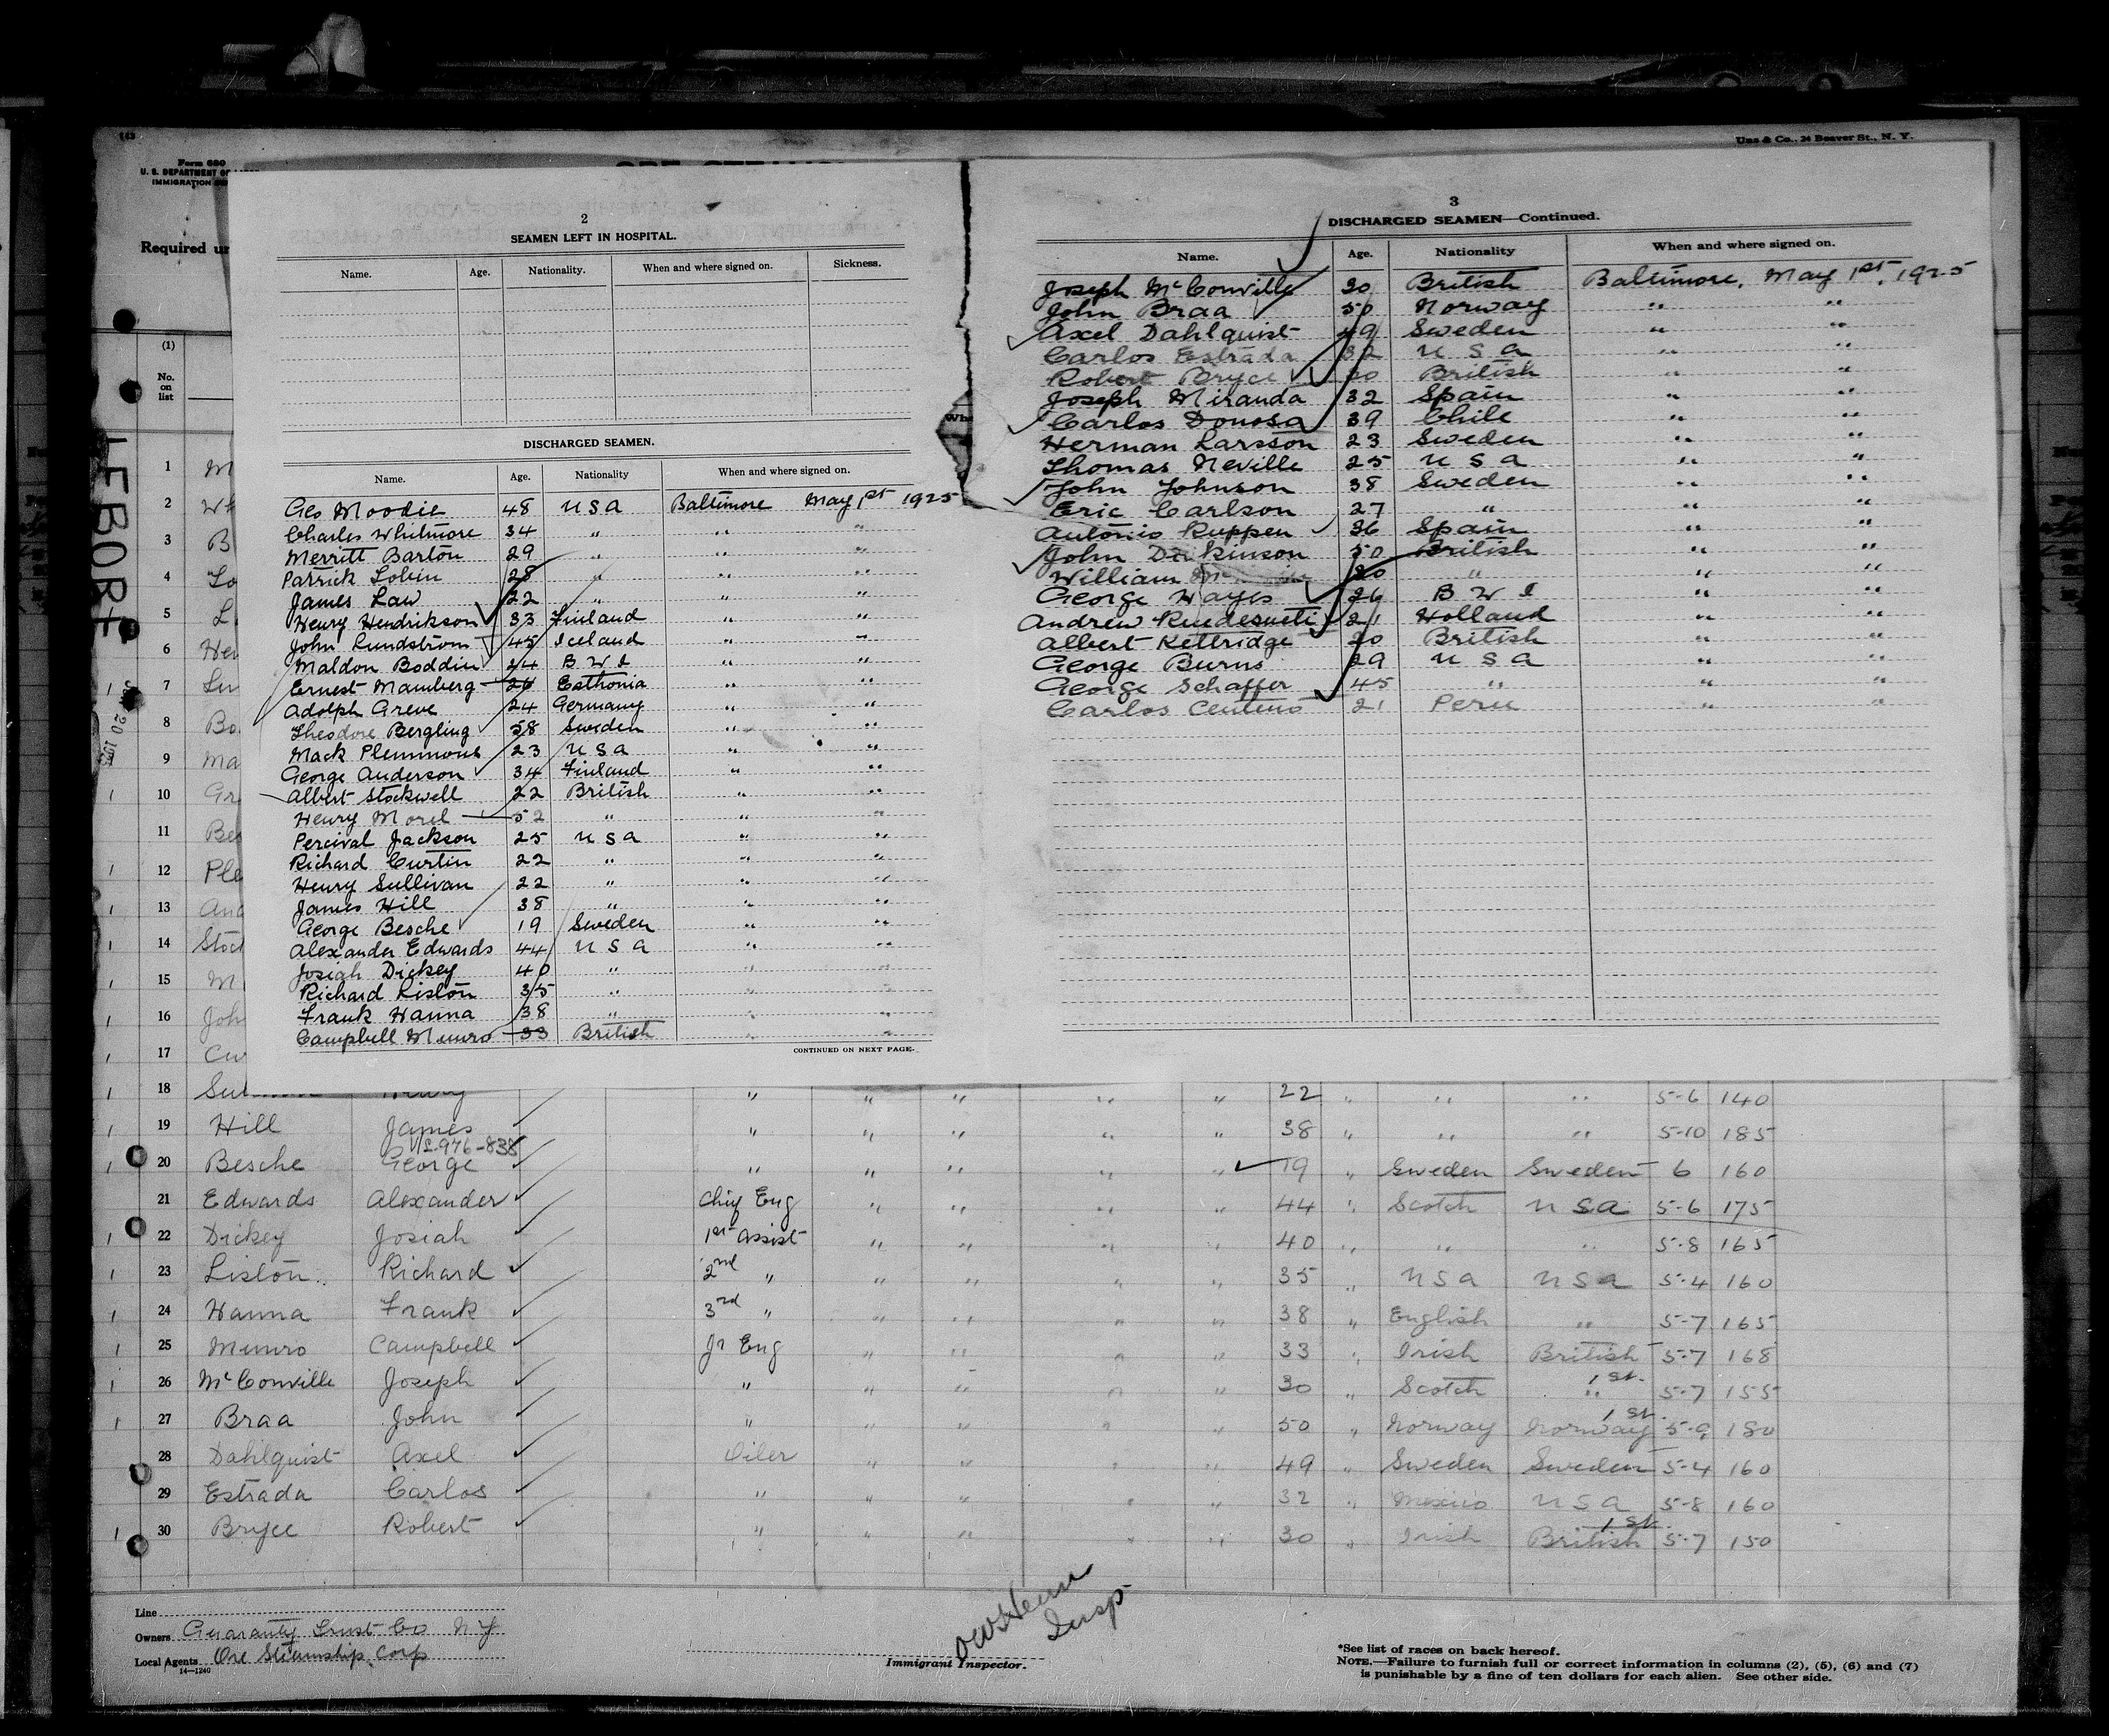 143
Uns & Co., 24 Beaver St., N. Y.
Form 680
U. S. DEPARTMENT OF
IMMIGRATION
Required un
(1)
No.
on
list
2
SEAMEN LEFT IN HOSPITAL.
Name. Age. Nationality. When and where signed on. Sickness.
DISCHARGED SEAMEN.
Name. Age. Nationality When and where signed on.
Geo Moodie 48 U S A Baltimore May 1st 1925
Charles Whitmore 34 " " "
Merritt Barton 29 " " "
Patrick Tobin 28 " " "
James Law 22 " " "
Henry Hendrickson 33 Finland " "
John Lundström 45 Iceland " "
Maldon Boddin 24 B W I " "
Ernest Mamberg 26 Esthonia " "
Adolph Greve 24 Germany " "
Theodore Bergling 58 Sweden " "
Mack Plemmons 23 U S A " "
George Anderson 34 Finland " "
Albert Stockwell 22 British " "
Henry Morel 52 " " "
Percival Jackson 25 U S A " "
Richard Curtin 22 " " "
Henry Sullivan 22 " " "
James Hill 38 " " "
George Besche 19 Sweden " "
Alexander Edwards 44 U S A " "
Josiah Dickey 40 " " "
Richard Liston 35 " " "
Frank Hanna 38 " " "
Campbell Munro 33 British " "
CONTINUED ON NEXT PAGE.
3
DISCHARGED SEAMEN—Continued.
Name. Age. Nationality When and where signed on.
Joseph McConville 30 British Baltimore, May 1st, 1925
John Braa 50 Norway " "
Axel Dahlquist 49 Sweden " "
Carlos Estrada 32 U S A " "
Robert Bryce 30 British " "
Joseph Miranda 32 Spain " "
Carlos Donosa 39 Chile " "
Herman Larsson 23 Sweden " "
Thomas Neville 25 U S A " "
John Johnson 38 Sweden " "
Eric Carlson 27 " " "
Antonio Ruppen 36 Spain " "
John Dickinson 50 British " "
William 20 " " "
George Hayes 26 B W I " "
Andrew 21 Holland " "
Albert Kettridge 20 British " "
George Burns 29 U S A " "
George Schaffer 45 " " "
Carlos Centeno 21 Peru " "
LEBORE
1 M
2 Wh
3 B
4 To
5 L
6 Hen
7 Lun
8 Bo
9 Ma
10 Gr
11 Ber
12 Ple
13 And
14 Stoc
15 M
16 Joh
17 Cur
18 Sullivan Henry " " " " " 22 " " " 5-6 140
19 Hill James " " " " " 38 " " " 5-10 185
20 Besche George " " " " " 19 " Sweden Sweden 6 160
21 Edwards Alexander Chief Eng " " " " 44 " Scotch U S A 5-6 175
22 Dickey Josiah 1st Assist " " " " 40 " " " 5-8 165
23 Liston Richard 2nd " " " " " 35 " U S A U S A 5-4 160
24 Hanna Frank 3rd " " " " " 38 " English " 5-7 165
25 Munro Campbell Jr Eng " " " " 33 " Irish British 5-7 168
26 McConville Joseph " " " " " 30 " Scotch " 5-7 155
27 Braa John " " " " " 50 " Norway Norway 5-9 180
28 Dahlquist Axel Oiler " " " " 49 " Sweden Sweden 5-4 160
29 Estrada Carlos " " " " " 32 " Mexico U S A 5-8 160
30 Bryce Robert " " " " " 30 " Irish British 5-7 150
Line
Owners Guaranty Trust Co N Y
Local Agents Ore Steamship Corp
14—1240
Insp
Immigrant Inspector.
*See list of races on back hereof.
NOTE.—Failure to furnish full or correct information in columns (2), (5), (6) and (7)
is punishable by a fine of ten dollars for each alien. See other side.